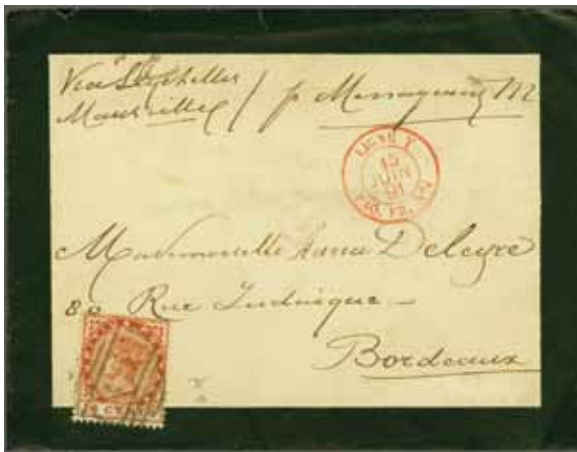 Via Seychelles
Marseille / p. Messageries M
LIGNE T
15
JUIN
91
PAQ. FR.
Mademoiselle Deleyre
80 Rue
Bordeaux